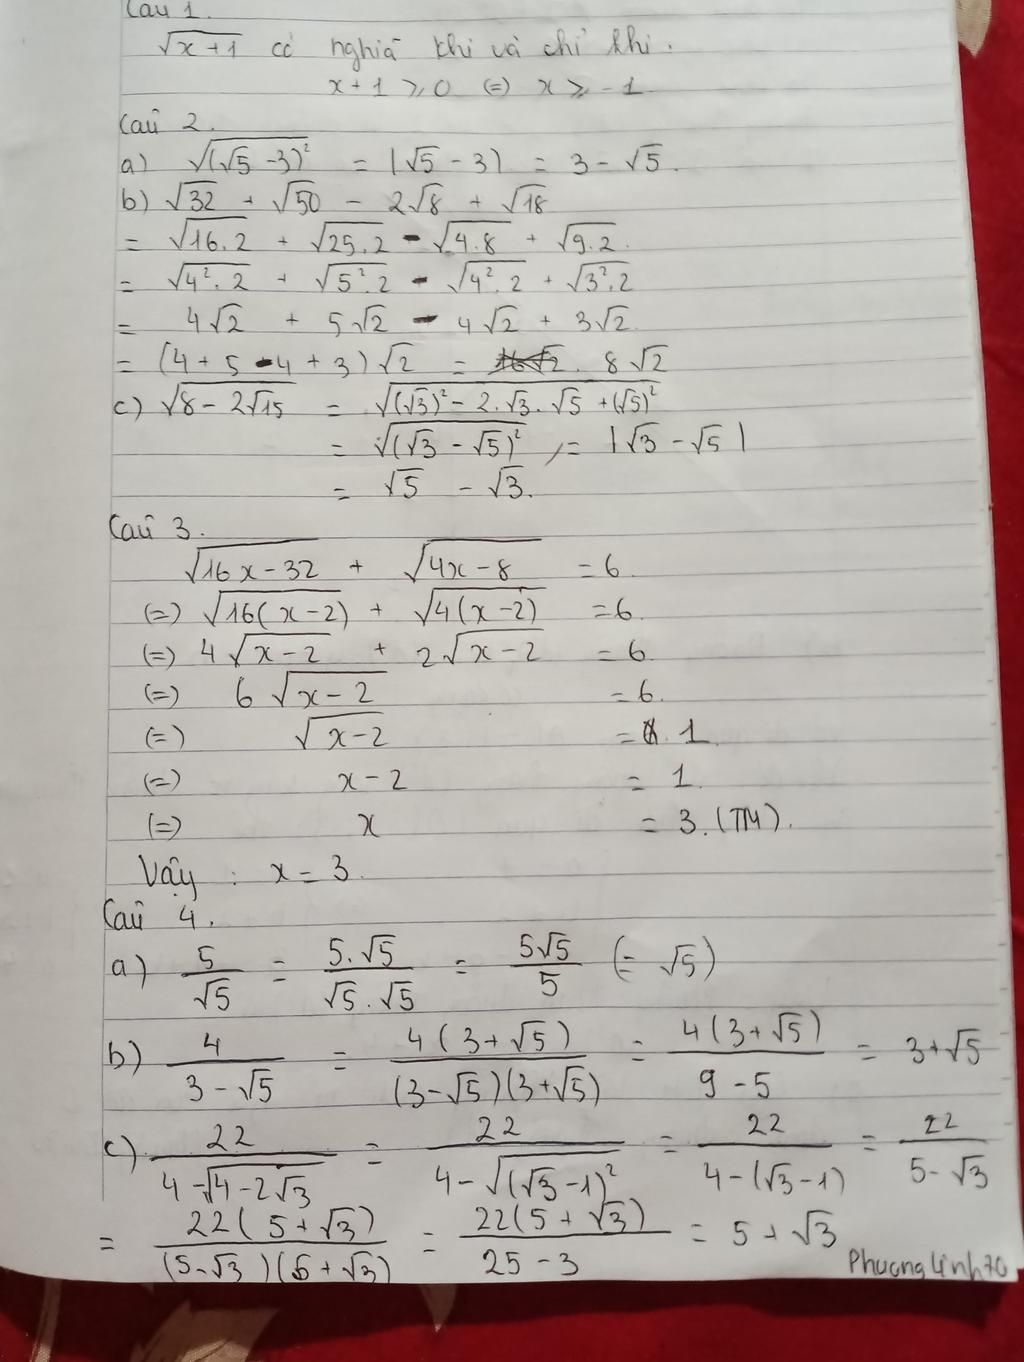 Câu 1.
√(x+1) có nghĩa khi và chỉ khi.
x+1 ⩾ 0 (=) x ⩾ -1
Câu 2.
a) √((√5 - 3)²) = |√5 - 3| = 3 - √5.
b) √32 + √50 - 2√8 + √18
= √(16.2) + √(25.2) - √(4.8) + √(9.2).
= √(4².2) + √(5².2) - √(4².2) + √(3².2)
= 4√2 + 5√2 - 4√2 + 3√2
= (4+5-4+3)√2 = 8√2
c) √(8-2√15) = √((√3)² - 2.√3.√5 + (√5)²)
= √((√3 - √5)²) = |√3 - √5|
= √5 - √3.
Câu 3.
√(16x-32) + √(4x-8) = 6
(=) √(16(x-2)) + √(4(x-2)) = 6
(=) 4√(x-2) + 2√(x-2) = 6
(=) 6√(x-2) = 6.
(=) √(x-2) = 1
(=) x-2 = 1
(=) x = 3. (TM).
Vậy : x = 3.
Câu 4.
a) 5/√5 = 5.√5/(√5.√5) = 5√5/5 (= √5)
b) 4/(3-√5) = 4(3+√5)/((3-√5)(3+√5)) = 4(3+√5)/(9-5) = 3+√5
c) 22/(4-√(4-2√3)) = 22/(4-√((√3-1)²)) = 22/(4-(√3-1)) = 22/(5-√3)
= 22(5+√3)/((5-√3)(5+√3)) = 22(5+√3)/(25-3) = 5+√3
Phuonglinh70